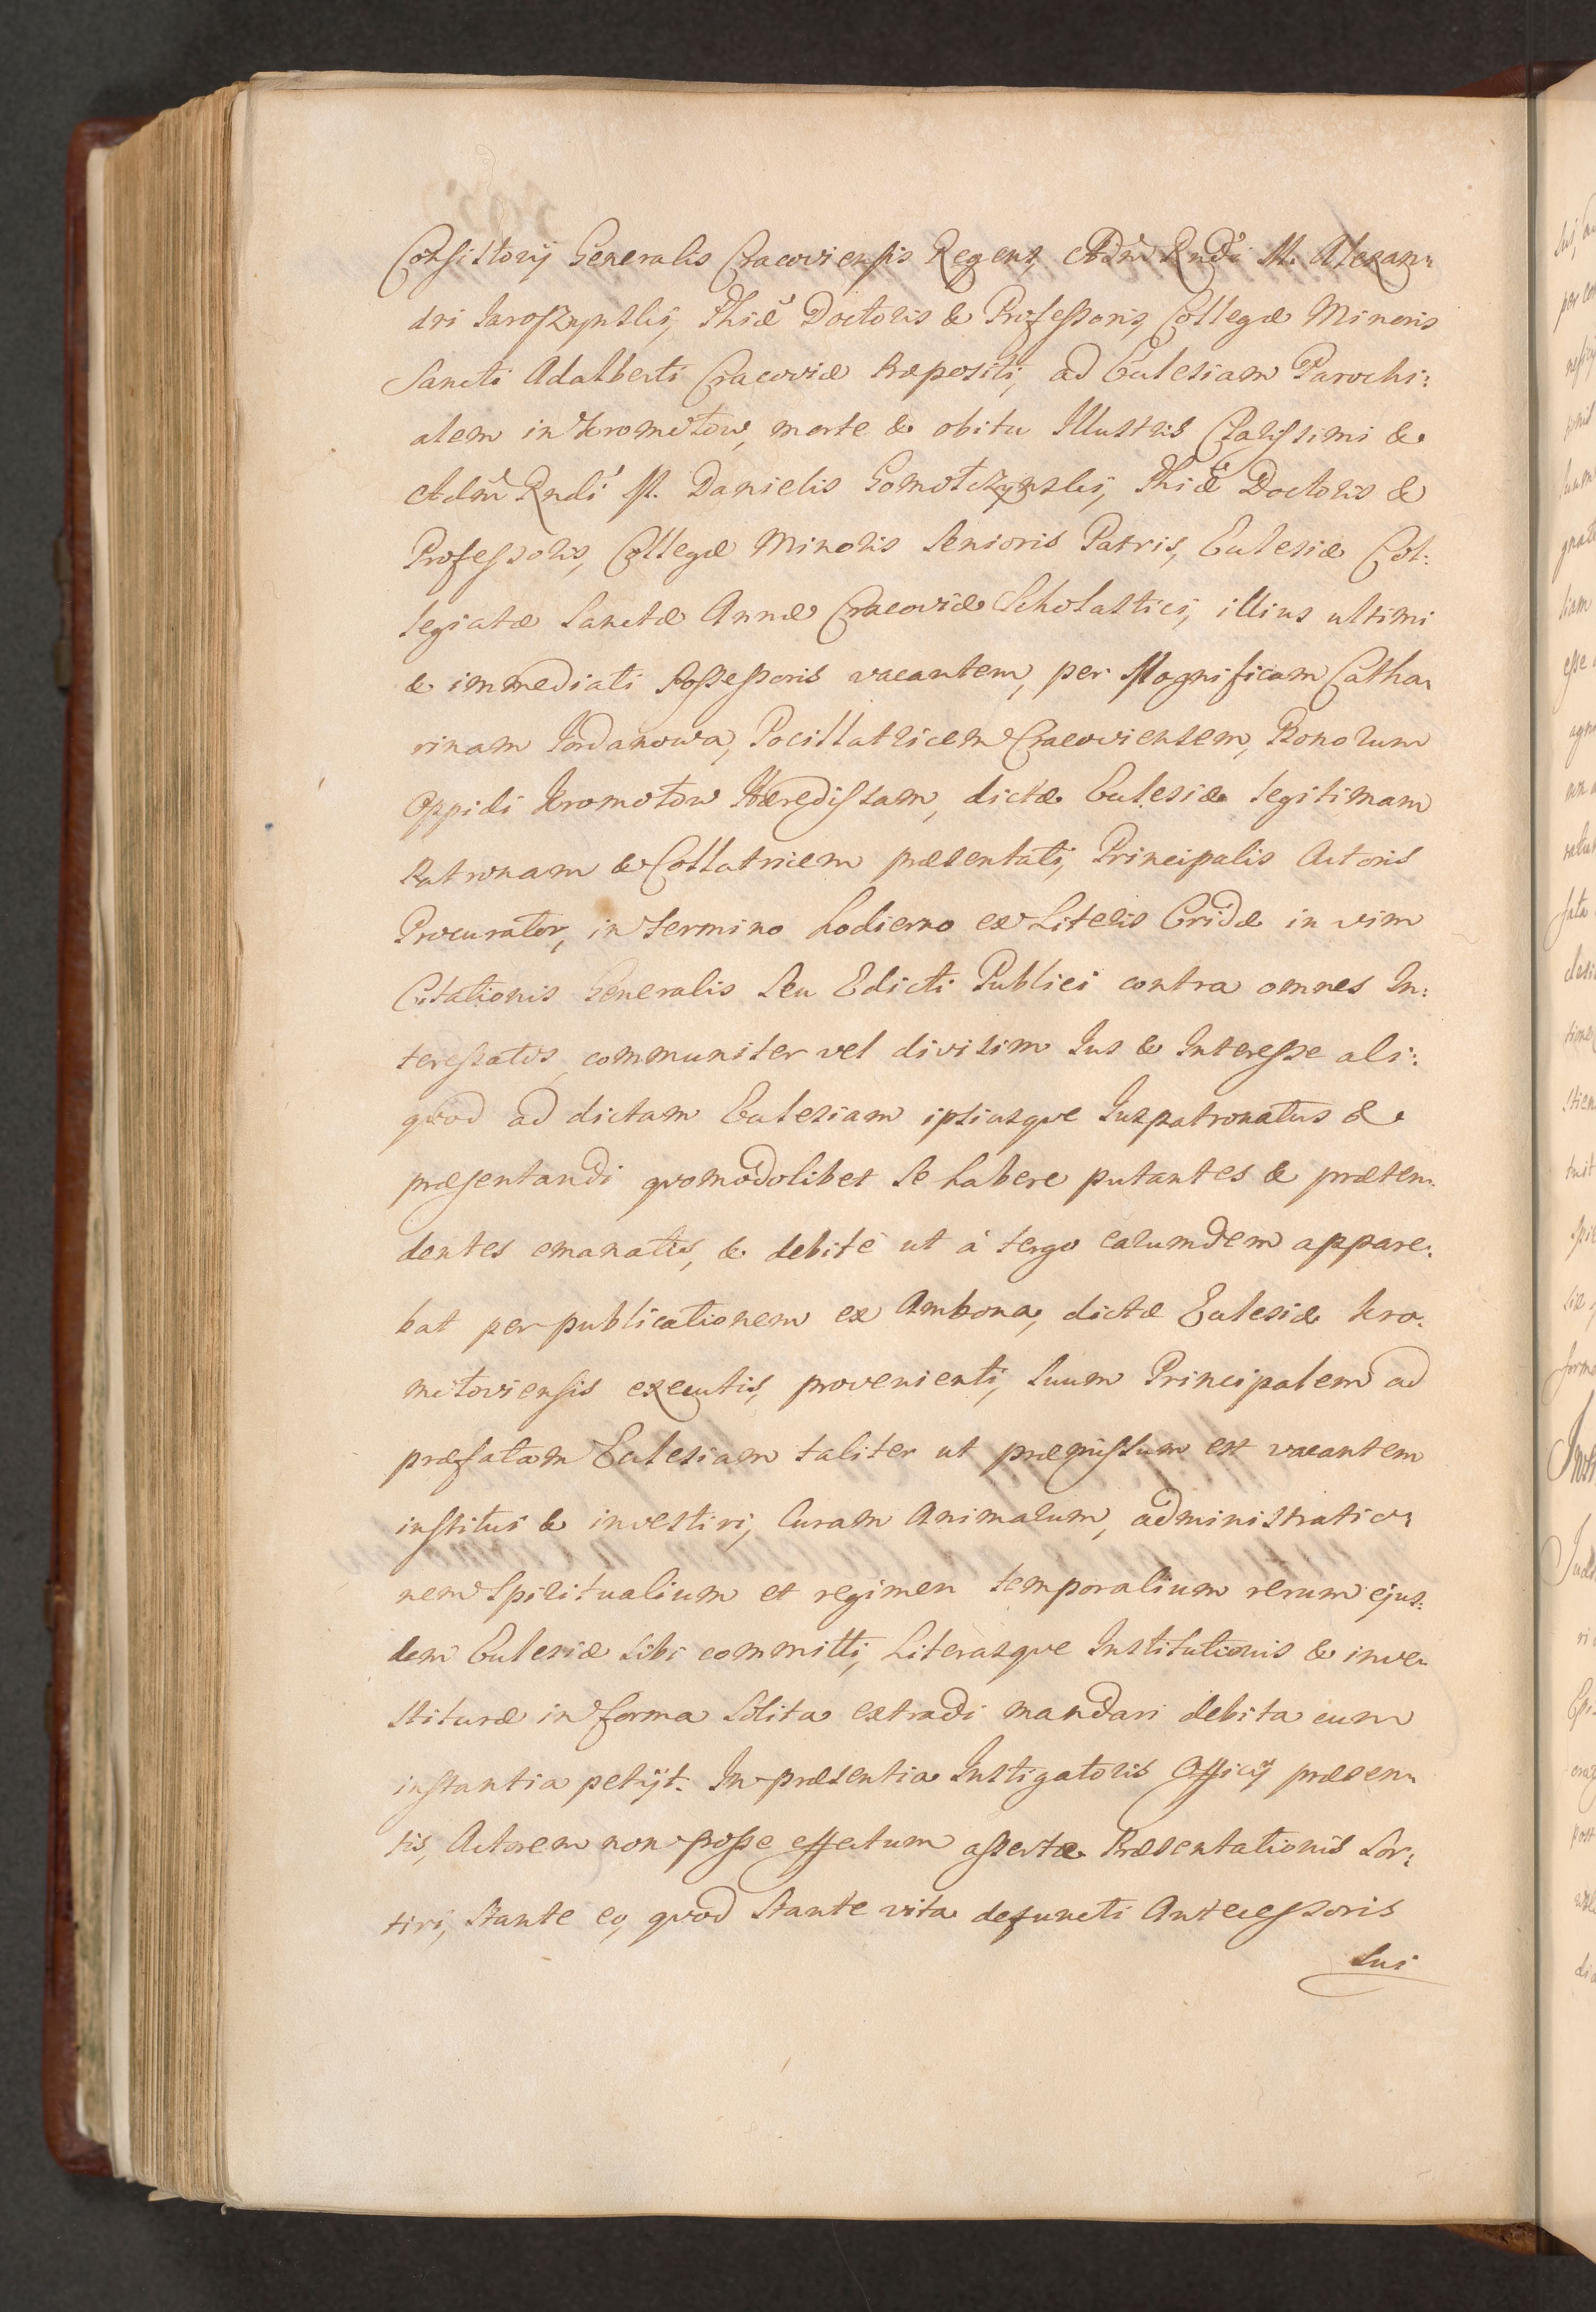 Consistorij Generalis Cracoviensis Regens, Adm̃ Rndi M. Alexan:
dri Jaroszynski, Phiæ Doctoris & Professoris, Collegæ Minoris
Sancti Adalberti Cracoviæ Præpositi, ad Ecclesiam Parochi:
alem in Kromołow, morte & obitu Illustris Clarissimi &
Adm̃ Rndi M. Danielis Gomołczynski, Phiæ Doctoris &
Professoris, Collegæ Minoris Senioris Patris, Ecclesiæ Col:
legiatæ Sanctæ Annæ Cracoviæ Scholastici, illius ultimi
& immediati Possessoris vacantem, per Magnificam Catha:
rinam Jordanowa, Pocillatricem Cracoviensem, Bonorum
Oppidi Kromołow Hæredissam, dictæ Ecclesiæ legitimam
Patronam & Collatricem præsentati, Principalis Actoris
Procurator, in termino hodierno ex Literis Cridæ in vim
Citationis Generalis seu Edicti Publici contra omnes In:
teressatos, communiter vel divisim Jus & Interesse ali:
quod ad dictam Ecclesiam ipsiusque Juspatronatus &
præsentandi quomodolibet se habere putantes & præten:
dentes emanatis, & debite ut à tergo earumdem appare:
bat per publicationem ex Ambona, dictæ Ecclesiæ Kro:
mołoviensis executis, provenienti, suum Principalem ad
præfatam Ecclesiam taliter ut præmissum est vacantem
institui & investiri, Curam Animarum, administratio:
nem Spiritualium et regimen temporalium rerum ejus:
dem Ecclesiæ sibi committi, Literasque Institutionis & inve:
stituræ in forma solita extradi mandari debita cum
instantia petijt. In præsentia Instigatoris Officij præsen:
tis, Actorem non posse effectum assertæ Præsentationis sor:
tiri, stante eo, quod stante vita defuncti Antecessoris
sui